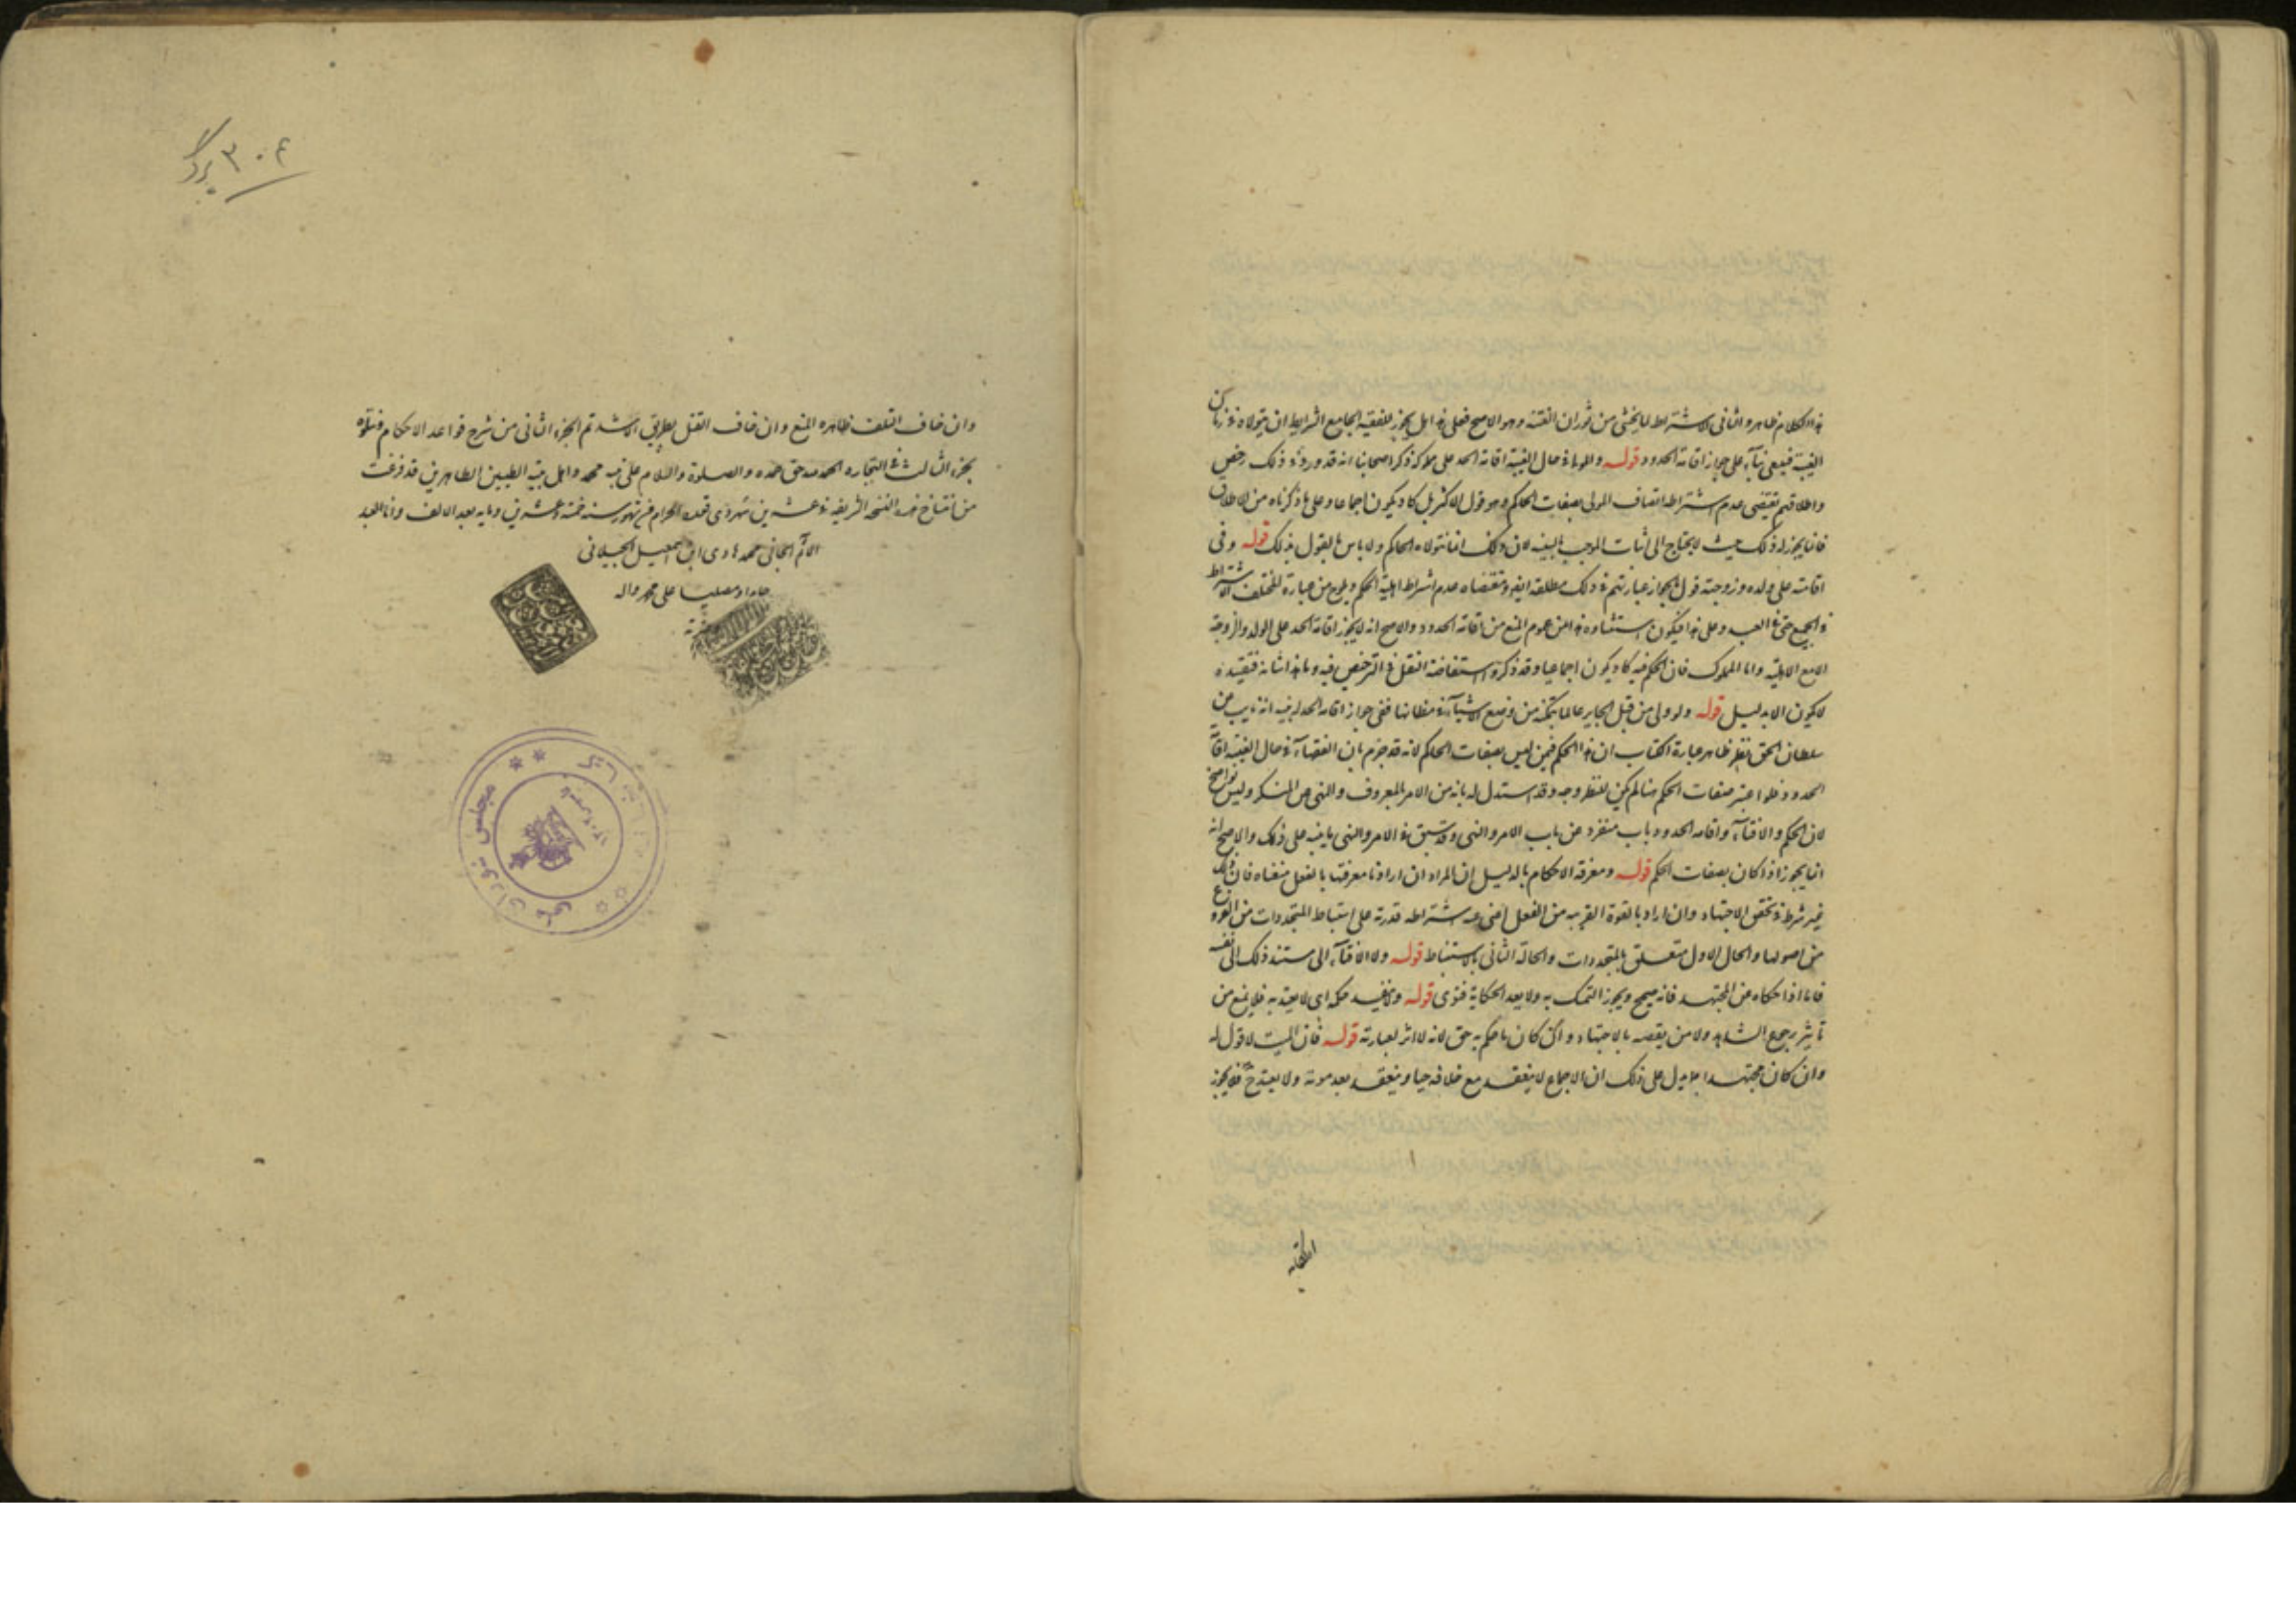 هذا الكلام ظاهره والثاني الاشتراط لما يخشى من ثوران الفتنة وهو الاصح فعلى هذا هل يجوز للفقيه الجامع الشرايط ان يتولاه في زمان
الغيبة ينبغي بناء على جواز اقامة الحدود قوله وللمولى في حال الغيبة اقامة الحد على مملوكه ذكر اصحابنا انه قد ورد في ذلك رخص
واطلاقهم يقتضي عدم اشتراط اتصاف المولى بصفات الحاكم وهو قول الاكثر بل كاد يكون اجماعا وعلى ما ذكرناه من الاطلاق
فانما يجوز له ذلك حيث لا يحتاج الى اثبات الموجب بالبينه لان ذلك انما يتولاه الحاكم ولا باس بالقول بذلك قوله وفي
اقامته على ولده وزوجته قول بالجواز عبارتهم في ذلك مطلقة ايضا ومقتضاه عدم اشتراط اهلية الحكم ويلوح من عبارة المختلف الاشتراط
في الجميع حتى في العبد وعلى هذا فيكون استثناء هذا من عموم المنع من اقامة الحدود والاصح انه لا يجوز اقامة الحد على الولد والزوجة
الا مع الاهلية واما المملوك فان الحكم فيه كاد يكون اجماعيا وقد ذكروا استفاضة النقل في الترخص فيه وما هذا شانه فتقييده
لا يكون الا بدليل قوله ولو ولي من قبل الجاير عالما بتمكنه من وضع الاشياء في مظانها ففي جواز اقامة الحد له بنية انه نايب عن
سلطان الحق نظر ظاهر عبارة الكتاب ان هذا الحكم فيمن ليس بصفات الحاكم لانه قد جزم بان للفقهاء في حال الغيبة اقامة
الحدود فلو اعتبر صفات الحكم هنا لم يكن للنظر وجه وقد استدل له بانه من الامر بالمعروف والنهي عن المنكر وليس بواضح
لان الحكم والافتاء واقامة الحدود باب منفرد عن باب الامر والنهي وقد سبق في الامر والنهي ما ينبه على ذلك والاصح انه
انما يجوز اذا كان بصفات الحكم قوله ومعرفة الاحكام بالدليل ان المراد ان اراد بها معرفتها بالفعل فمعناه فان ذلك
غير شرط في تحقق الاجتهاد وان اراد بالقوة القريبه من الفعل اغنى عنه اشتراطه قدرته على استنباط المتجددات من الفروع
من اصولها والحال الاول متعلق بالمتجددات والحالة الثاني بالاستنباط قوله ولا الافتاء الى مستند ذلك الى نفسه
فاما اذا حكاه عن المجتهد فانه صحيح ويجوز التمسك به ولا يعد الحكاية فتوى قوله ولا ينفذ حكمه اي لا يعتد به فلا يمنع من
تاثير رجوع الشاهد ولا من نقضه بالاجتهاد وان كان ما حكم به حق لانه لا اثر لعبارته قوله فان الميت لا قول له
وان كان مجتهدا يدل على ذلك ان الاجماع لا ينعقد مع خلافه حيا وينعقد بعد موته ولا يعتد ح فلا يجوز
٣٠٤ برگ
وان خاف التلف ظاهره المنع وان خاف القتل بطريق الاشد تم الجزء الثاني من شرح قواعد الاحكام ونتلوه
بجزء الثالث في التجاره الحمد لله حق حمده والصلوة والسلام على نبيه محمد واهل بيته الطيبين الطاهرين قد فرغت
من انتساخ هذه النسخه الشريفه في عشرين شهر ذي قعدة الحرام من شهور سنه خمسة وعشرين ومايه بعد الالف وانا العبد
الآثم الجاني محمد هادي ابن اسمعيل الجيلاني
حامدا ومصليا على محمد واله
مجلس شورای ملی